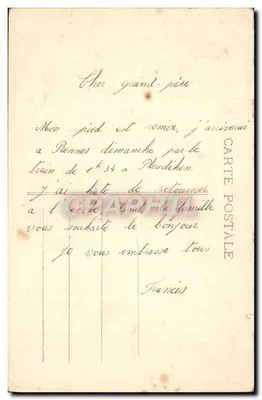 Cher grand-père
Mon pied est remis, j'arriverai
à Rennes dimanche par le
train de 1h 34 à Pleudihen
J'ai hate de retourner
a l'école Toute la famille
vous souhaite le bonjour
Je vous embrasse tous
Francis
CARTE POSTALE